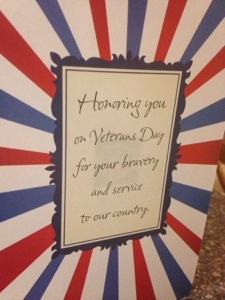 Honoring you
on Veterans Day
for your bravery
and service
to our country.